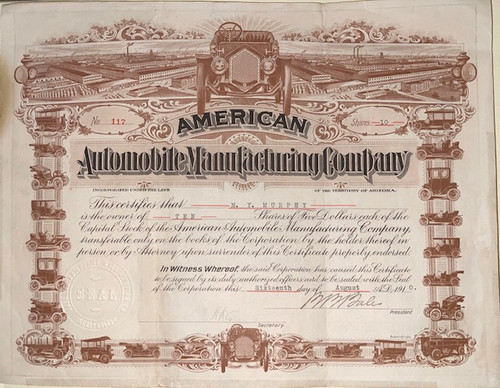 No 117
Shares 10
AMERICAN
Automobile Manufacturing Company
INCORPORATED UNDER THE LAWS OF THE TERRITORY OF ARIZONA.
This certifies that M. Y. MURPHY
is the owner of TEN Shares of Five Dollars each of the
Capital Stock of the American Automobile Manufacturing Company,
transferable only on the books of the Corporation by the holder thereof in
person or by Attorney upon surrender of this Certificate properly endorsed.
In Witness Whereof, the said Corporation has caused this Certificate
to be signed by its duly authorized officers and to be sealed with the Seal
of the Corporation this Sixteenth day of August A.D. 1910.
President
Secretary
SEAL